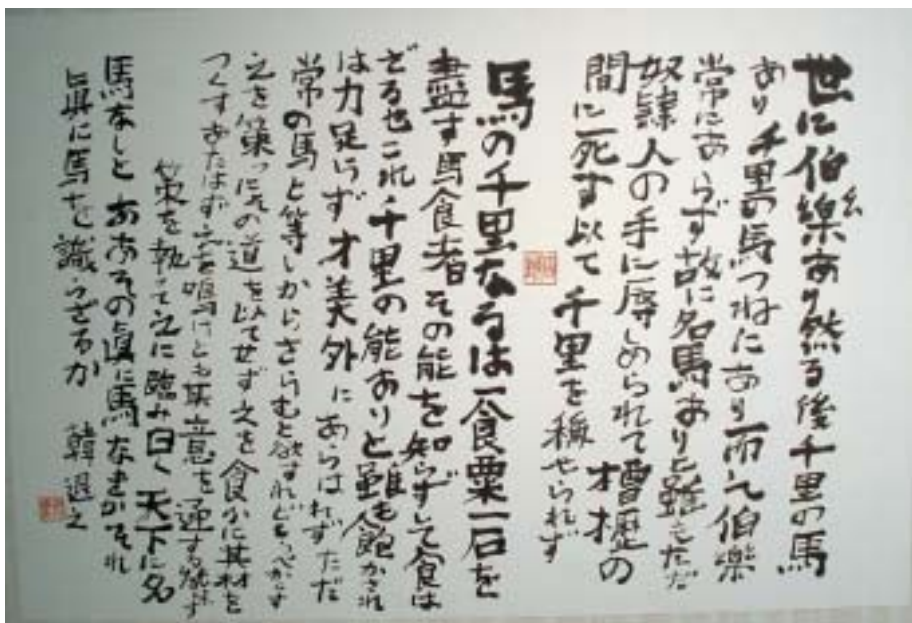 世に伯楽あり然る後千里の馬
あり千里の馬つねにあり而して伯樂
常にあらず故に名馬ありと雖もただ
奴隷人の手に辱しめられて槽櫪の
間に死す以て千里を稱せられず
馬の千里なるは一食粟一石を
盡す馬食者その能を知らずして食は
ざる也これ千里の能ありと雖も食飽かされ
は力足らず才美外にあらはれずただ
常の馬と等しからざらむと欲すれど
之を策つにその道を以てせず之を食ふに其材を
つくすあたはず之を鳴けども其意を通ずる
策を執って之に臨み曰く天下に名
馬なしとああその眞に馬なきかそれ
眞に馬を識らざるか 韓退之